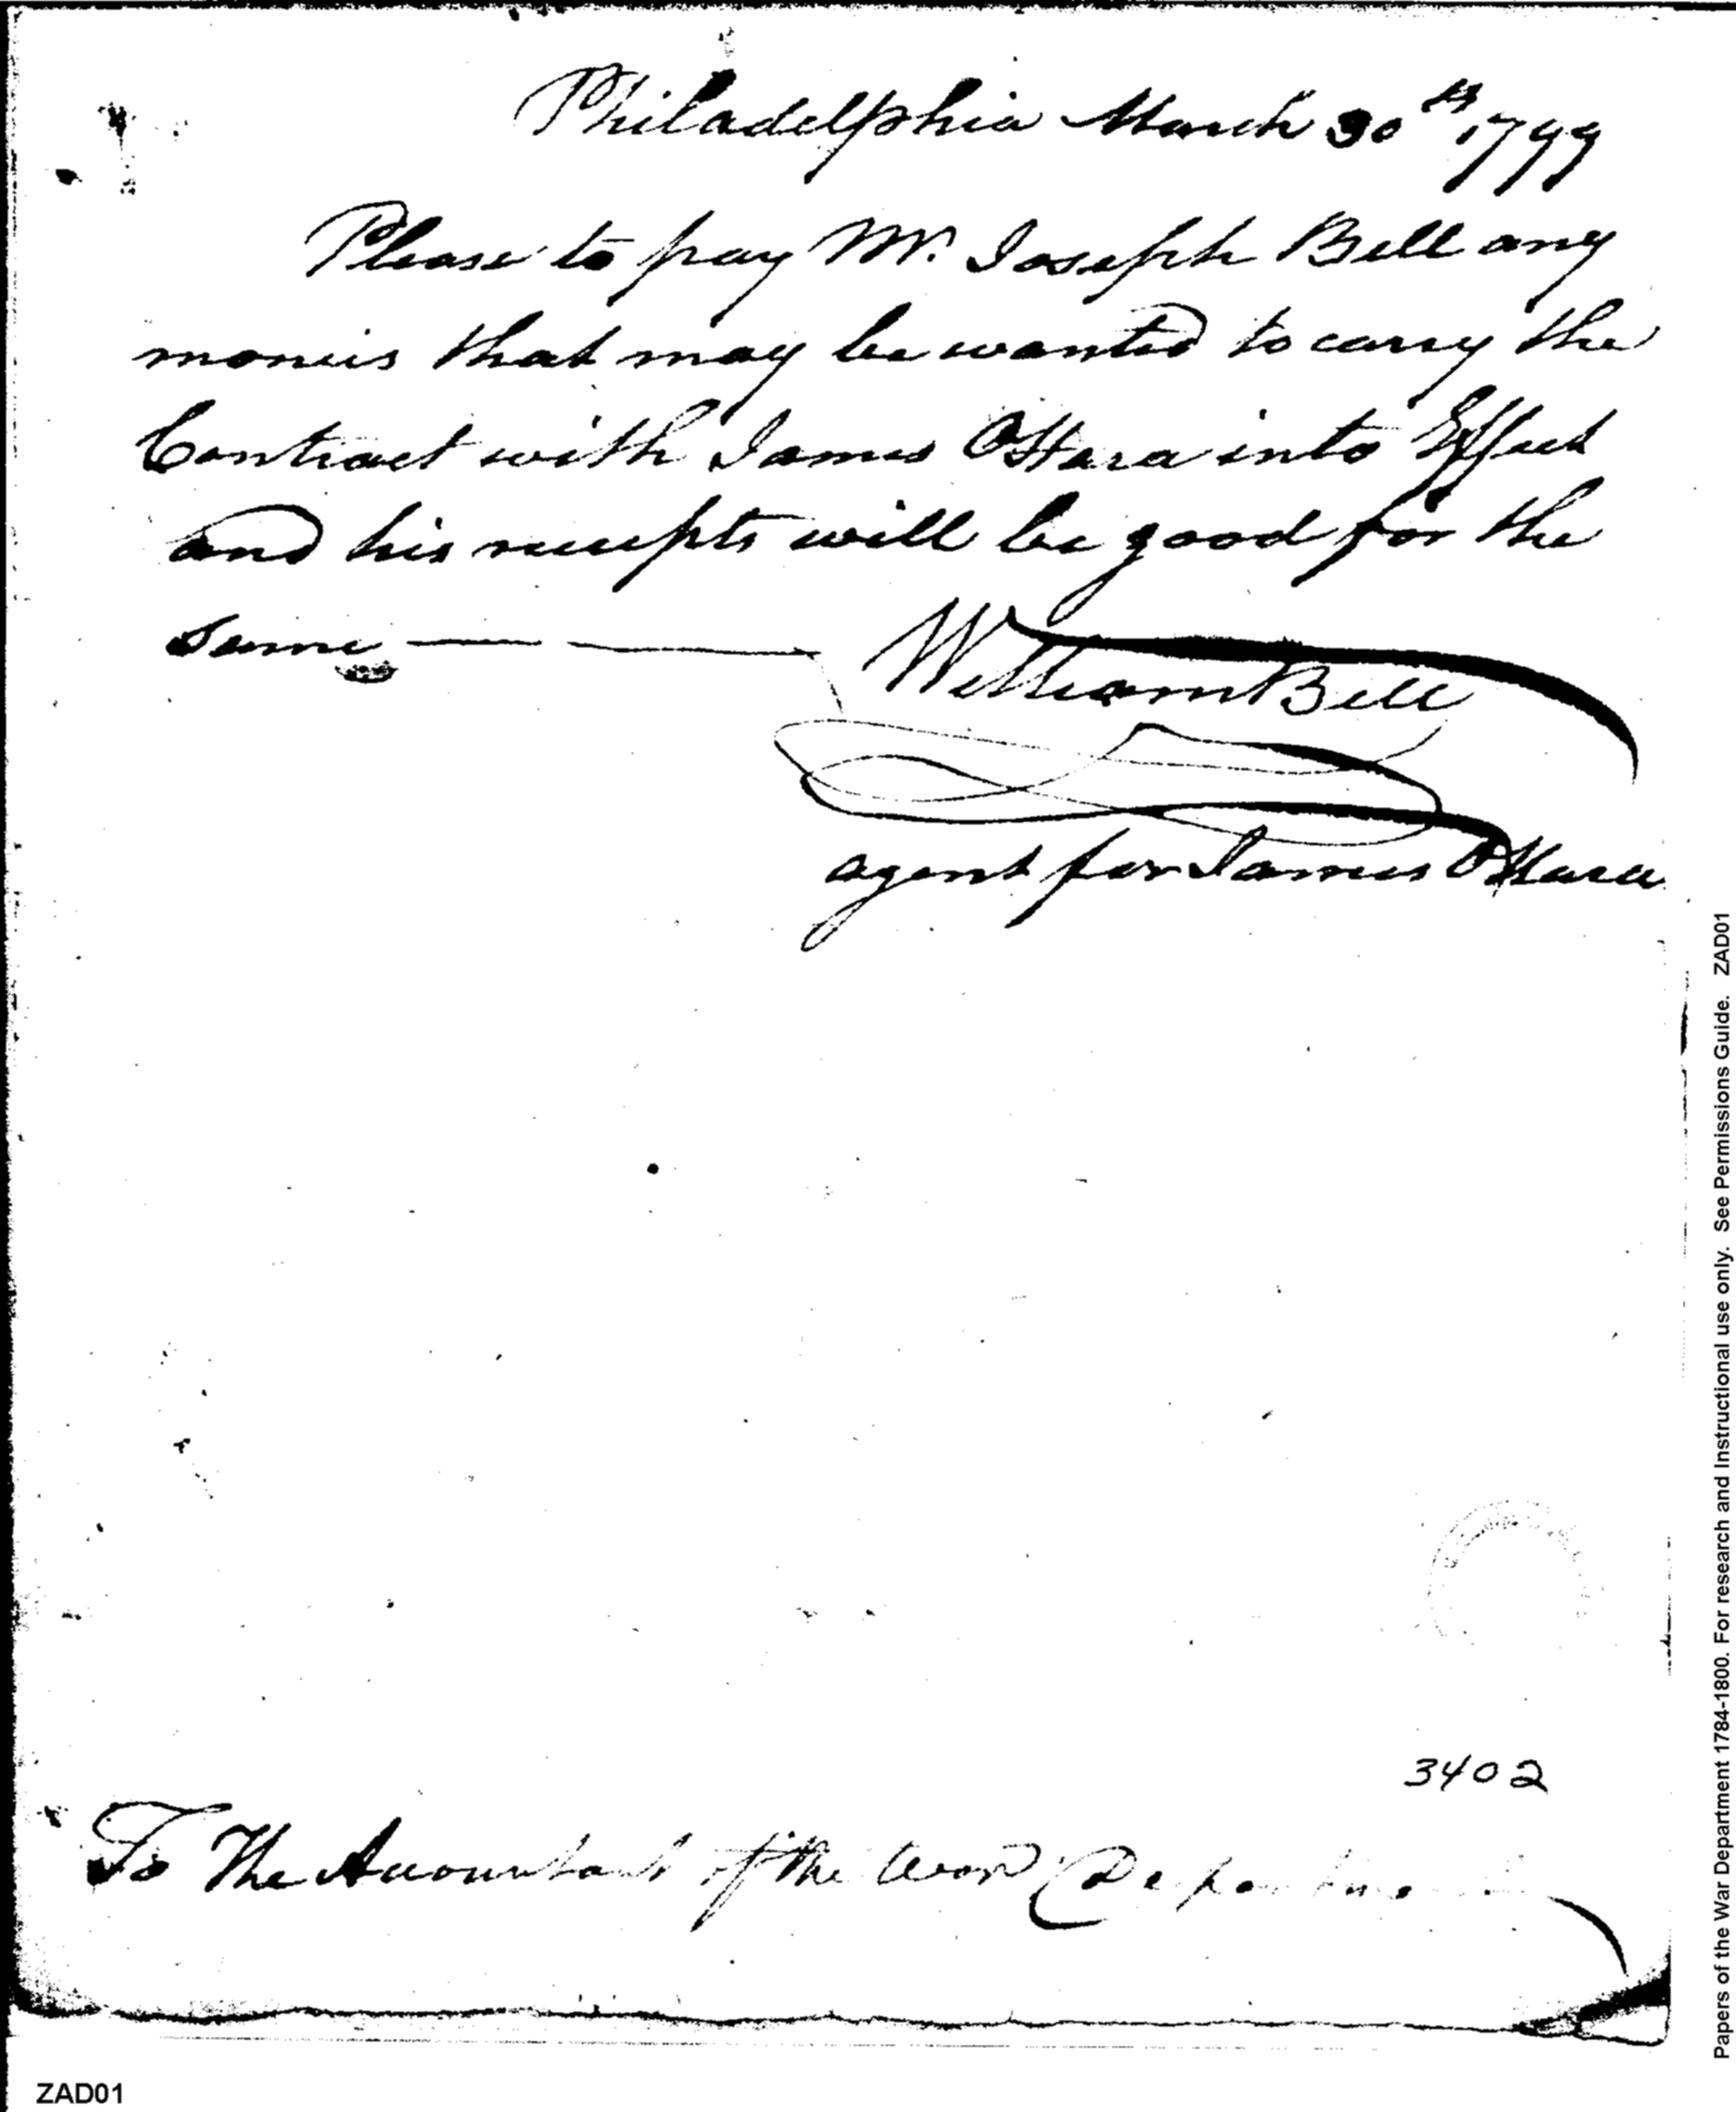 Philadelphia March 30th 1799
Please to pay Mr. Joseph Bell any
moneis that may be wanted to carry the
Contract with James OHara into Effect
and his receipts will be good for the
same
William Bell
agent for James OHara
3402
To The Accountant of the War Department
ZAD01
Papers of the War Department 1784-1800. For research and Instructional use only. See Permissions Guide. ZAD01